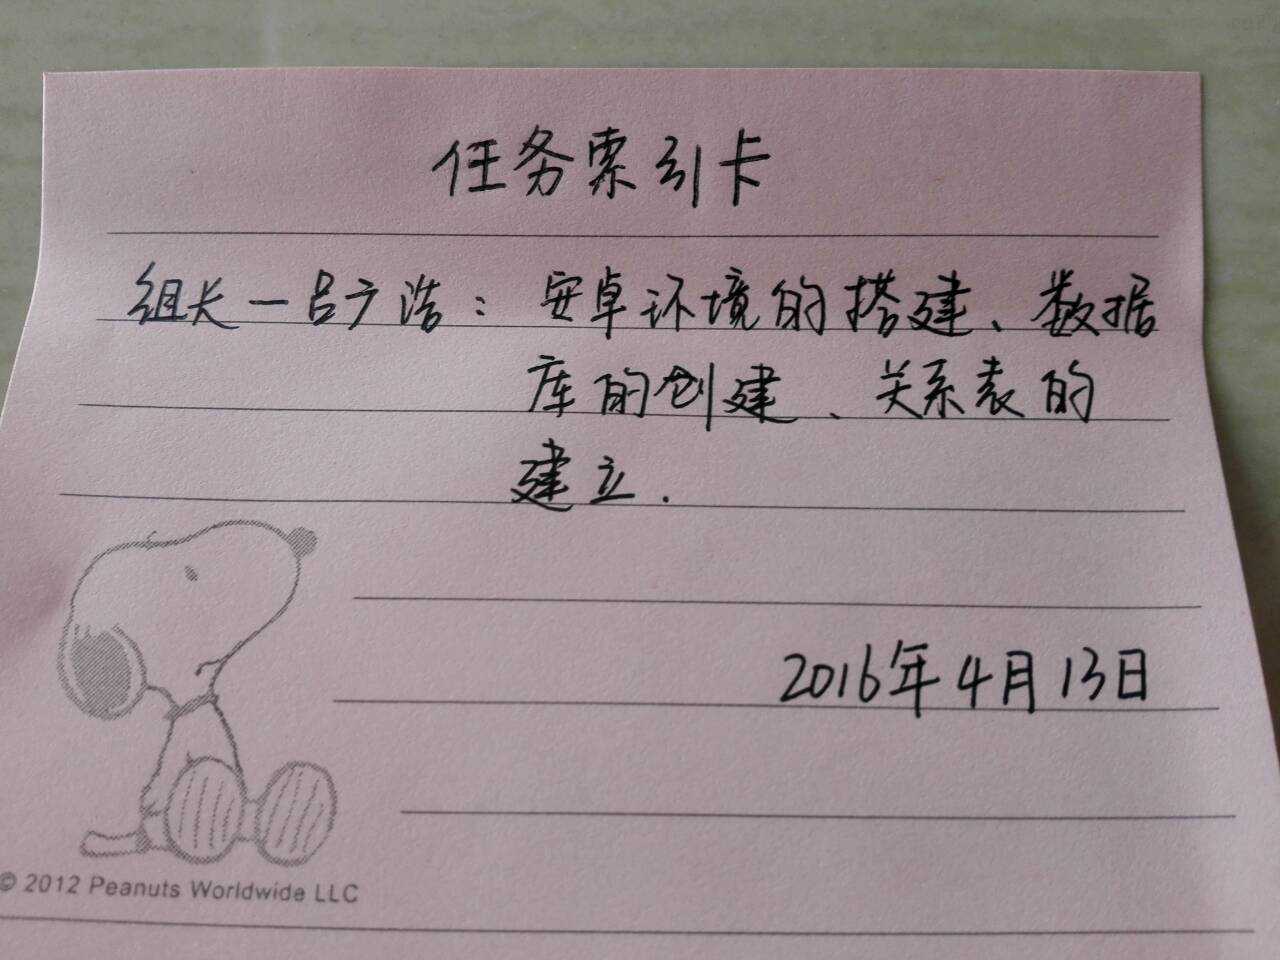 任务索引卡
组长一吕广浩：安卓环境的搭建、数据
库的创建、关系表的
建立.
2016年4月13日
© 2012 Peanuts Worldwide LLC